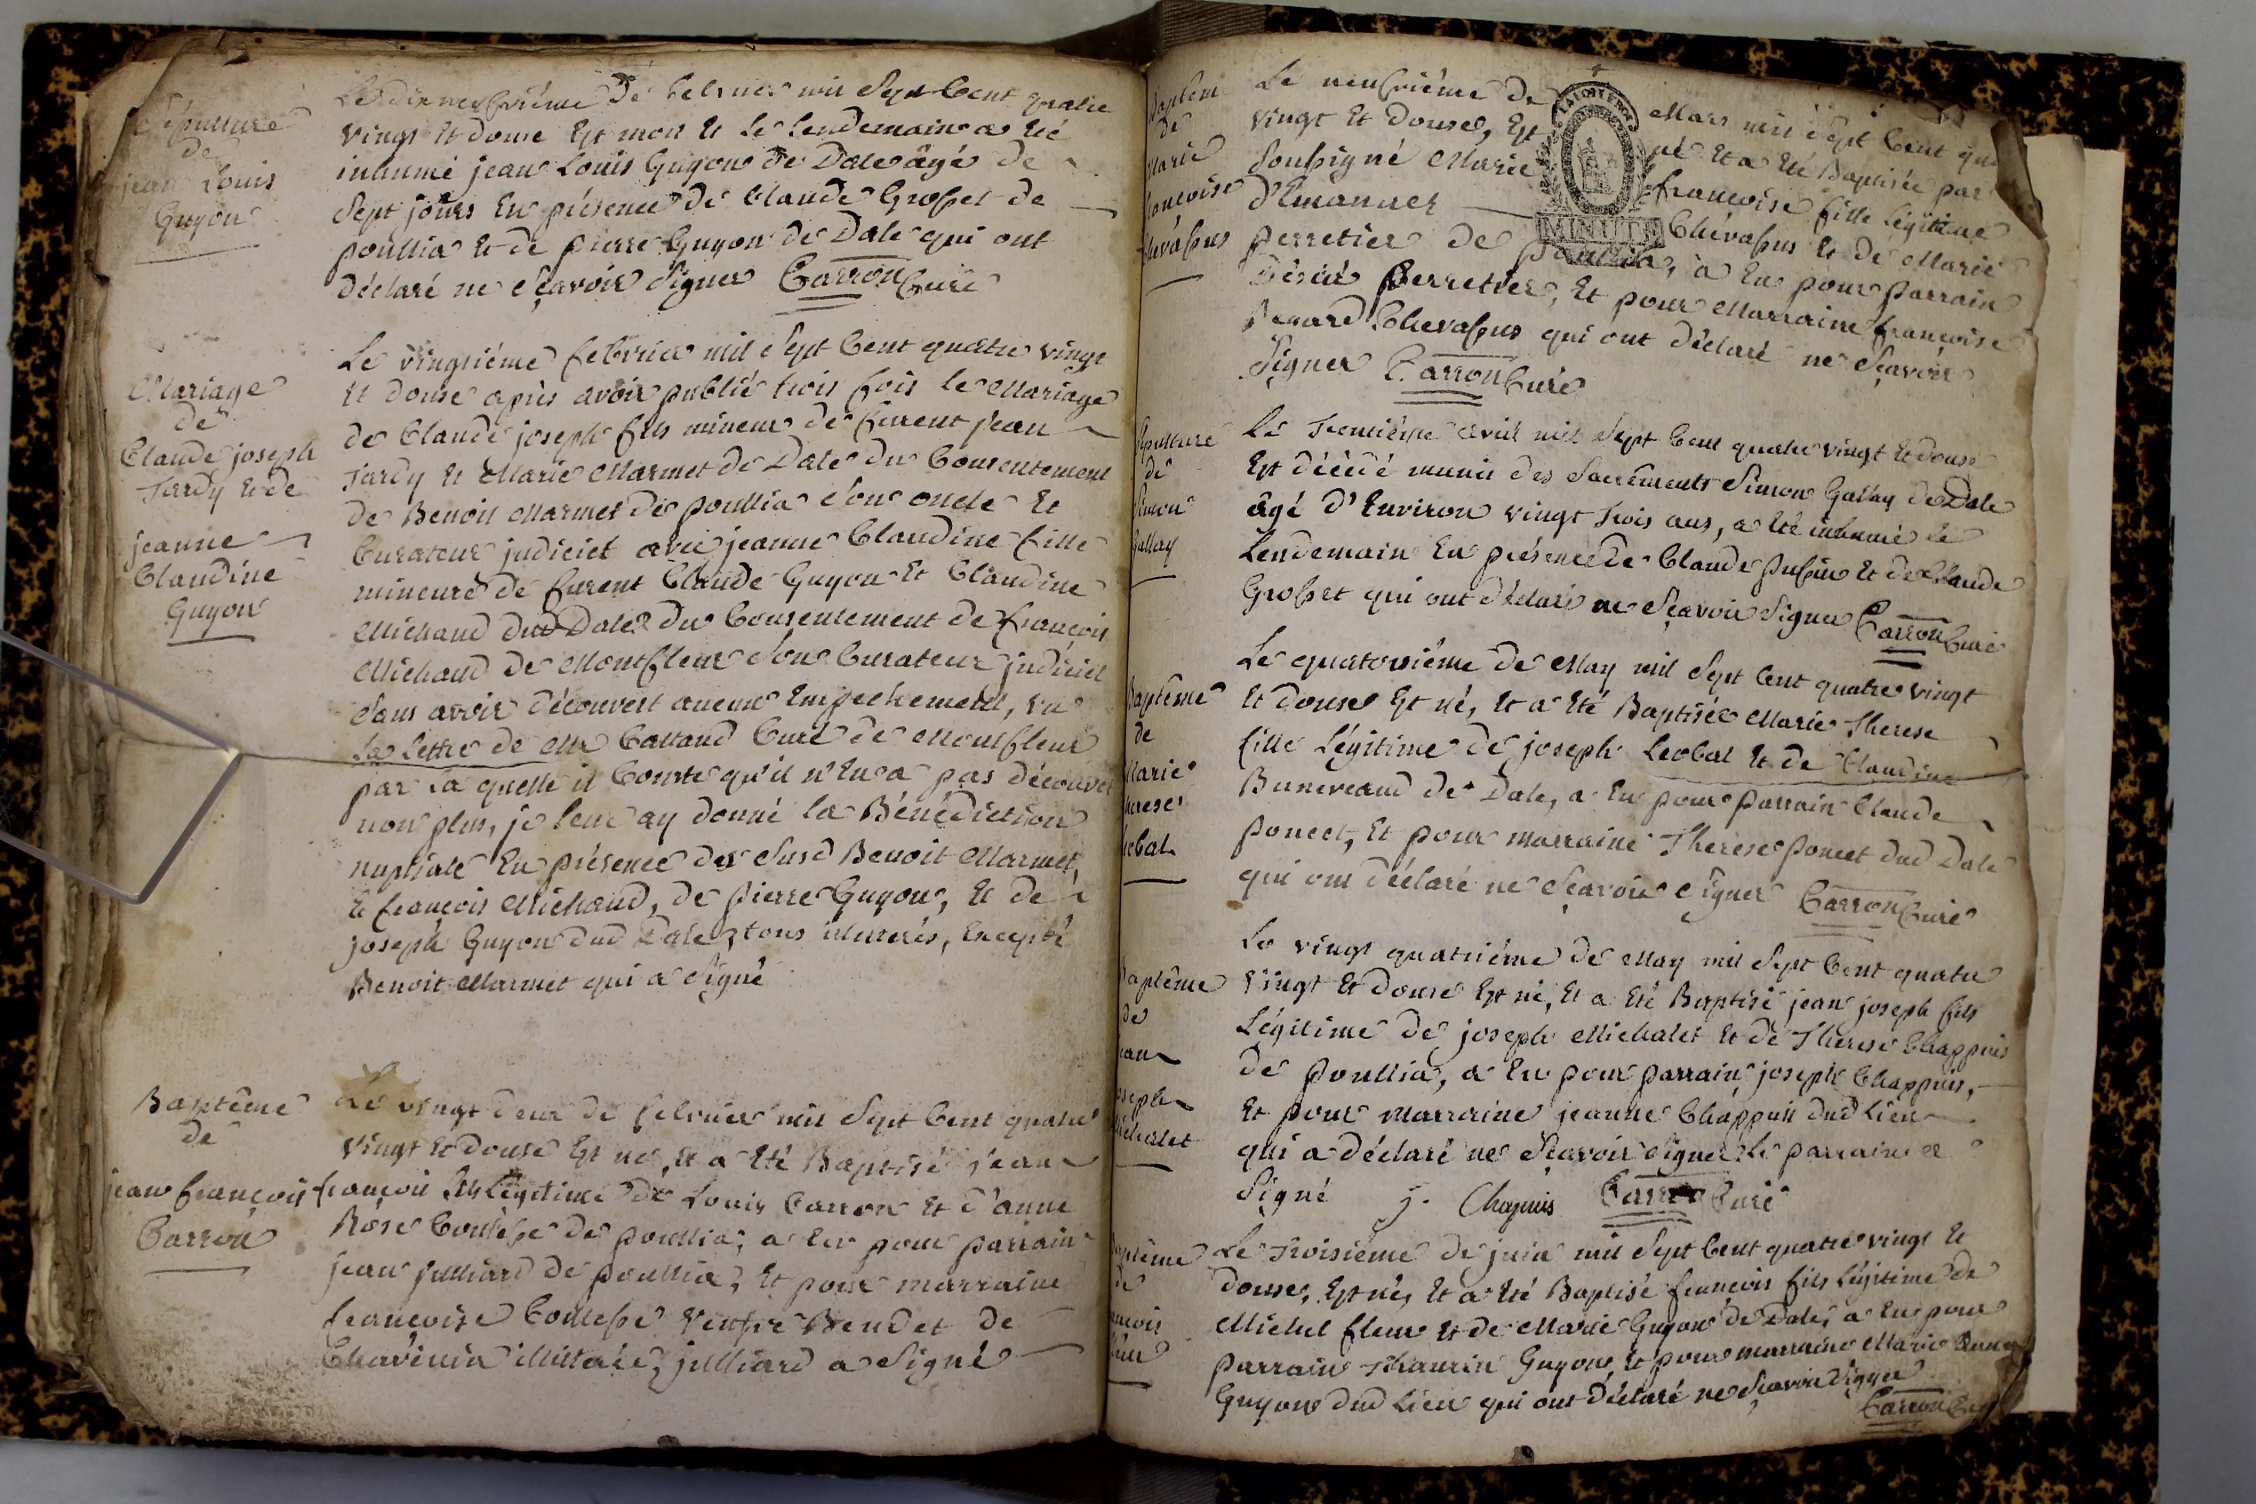 Sépulture
de
jean Louis
Guyon
Le dixneufvième de febvrier mil Sept Cent quatre
vingt Et douse Est mort Et le Lendemain a Eté
inhumé jean Louis Guyon de Dale âgé de
Sept jours En présence de Claude Grosset de
poullia Et de pierre Guyon de Dale qui ont
déclaré ne Sçavoir Signer Carron Curé
Mariage
de
Claude joseph
Tardy Et de
jeanne
Claudine
Guyon
Le vingtiéme febvrier mil Sept Cent quatre vingt
Et douse après avoir publié trois fois le Mariage
de Claude joseph fils mineur de furent jean
Tardy Et Marie Marmet de Dale du Consentement
de Benoit Marmet de poullia Son oncle Et
Curateur judiciel avec jeanne Claudine fille
mineure de furent Claude Guyon Et Claudine
Michaud dud Dale du Consentement de françois
Michaud de Montfleur Son Curateur judiciel
Sans avoir découvert aucun Empechement, vu
La Lettre de Mr Cattand Curé de Montfleur
par la quelle il Conste qu'il n'En a pas découvert
non plus, je leur ay donné la Bénédiction
nuptiale En présence des Susd Benoit Marmet,
Et françois Michaud, de pierre Guyon, Et de
joseph Guyon dud Dale, tous illiterés, Excepté
Benoit Marmet qui a Signé
Baptême
de
jean françois
Carron
Le vingt deux de febvrier mil Sept Cent quatre
vingt Et douse Est né, Et a Eté Baptisé jean
françois fils Légitime de Louis Carron Et d'anne
Rose de poullia, a Eu pour parrain
jean julliard de poullia, Et pour marraine
françoise veufve Bendet de
Chavinia illiterée, julliard a Signé
Baptem
de
Marie
françoise
Chévassus
Le neufvième de Mars mil Sept Cent qua
vingt Et douse, Est né Et a Eté Baptisée par
Soussigné Marie françoise fille Légitime
d'Emanuel Chévassus Et de Marie
perretier de poullia, a Eu pour parrain
Désiré perretier, Et pour Marraine françoise
Chevassus qui ont déclaré ne Sçavoir
Signer Carron Curé
MINUTE
Sépulture
de
Simon
Gallay
Le Trentième avril mil Sept Cent quatre vingt Et douse
Est décédé munir des Sacrements Simon Gallay de Dale
âgé d'Environ vingt Trois ans, a Eté inhumé le
Lendemain En présence de Claude Et de Claude
Grosset qui ont déclaré ne Sçavoir Signer Carron Curé
Baptême
de
Marie
therese
Léobal
Le quatorsième de May mil Sept Cent quatre vingt
Et douse Est né, Et a Eté Baptisée Marie Therese
fille Légitime de joseph Leobal Et de Claudine
de Dale, a Eu pour parrain Claude
poncet, Et pour marraine Therese poncet dud Dale
qui ont déclaré ne Sçavoir Signer Carron Curé
Baptême
de
jean
joseph
Michalet
Le vingt quatrième de May mil Sept Cent quatre
vingt Et douse Est né, Et a Eté Baptisé jean joseph fils
Légitime de joseph Michalet Et de Therese Chappuis
de poullia, a Eu pour parrain joseph Chappuis,
Et pour marraine jeanne Chappuis dud Lieu
qui a déclaré ne Sçavoir Signer, Le parrain a
Signé j. Chapuis Carron Curé
Baptême
de
françois
fleur
Le Troisième de juin mil Sept Cent quatre vingt Et
douse, Est né, Et a Eté Baptisé françois fils Légitime de
Michel fleur Et de Marie Guyon de Dale, a Eu pour
parrain Guyon, Et pour marraine Marie
Guyon dud Lieu qui ont déclaré ne Sçavoir Signer
Carron Curé